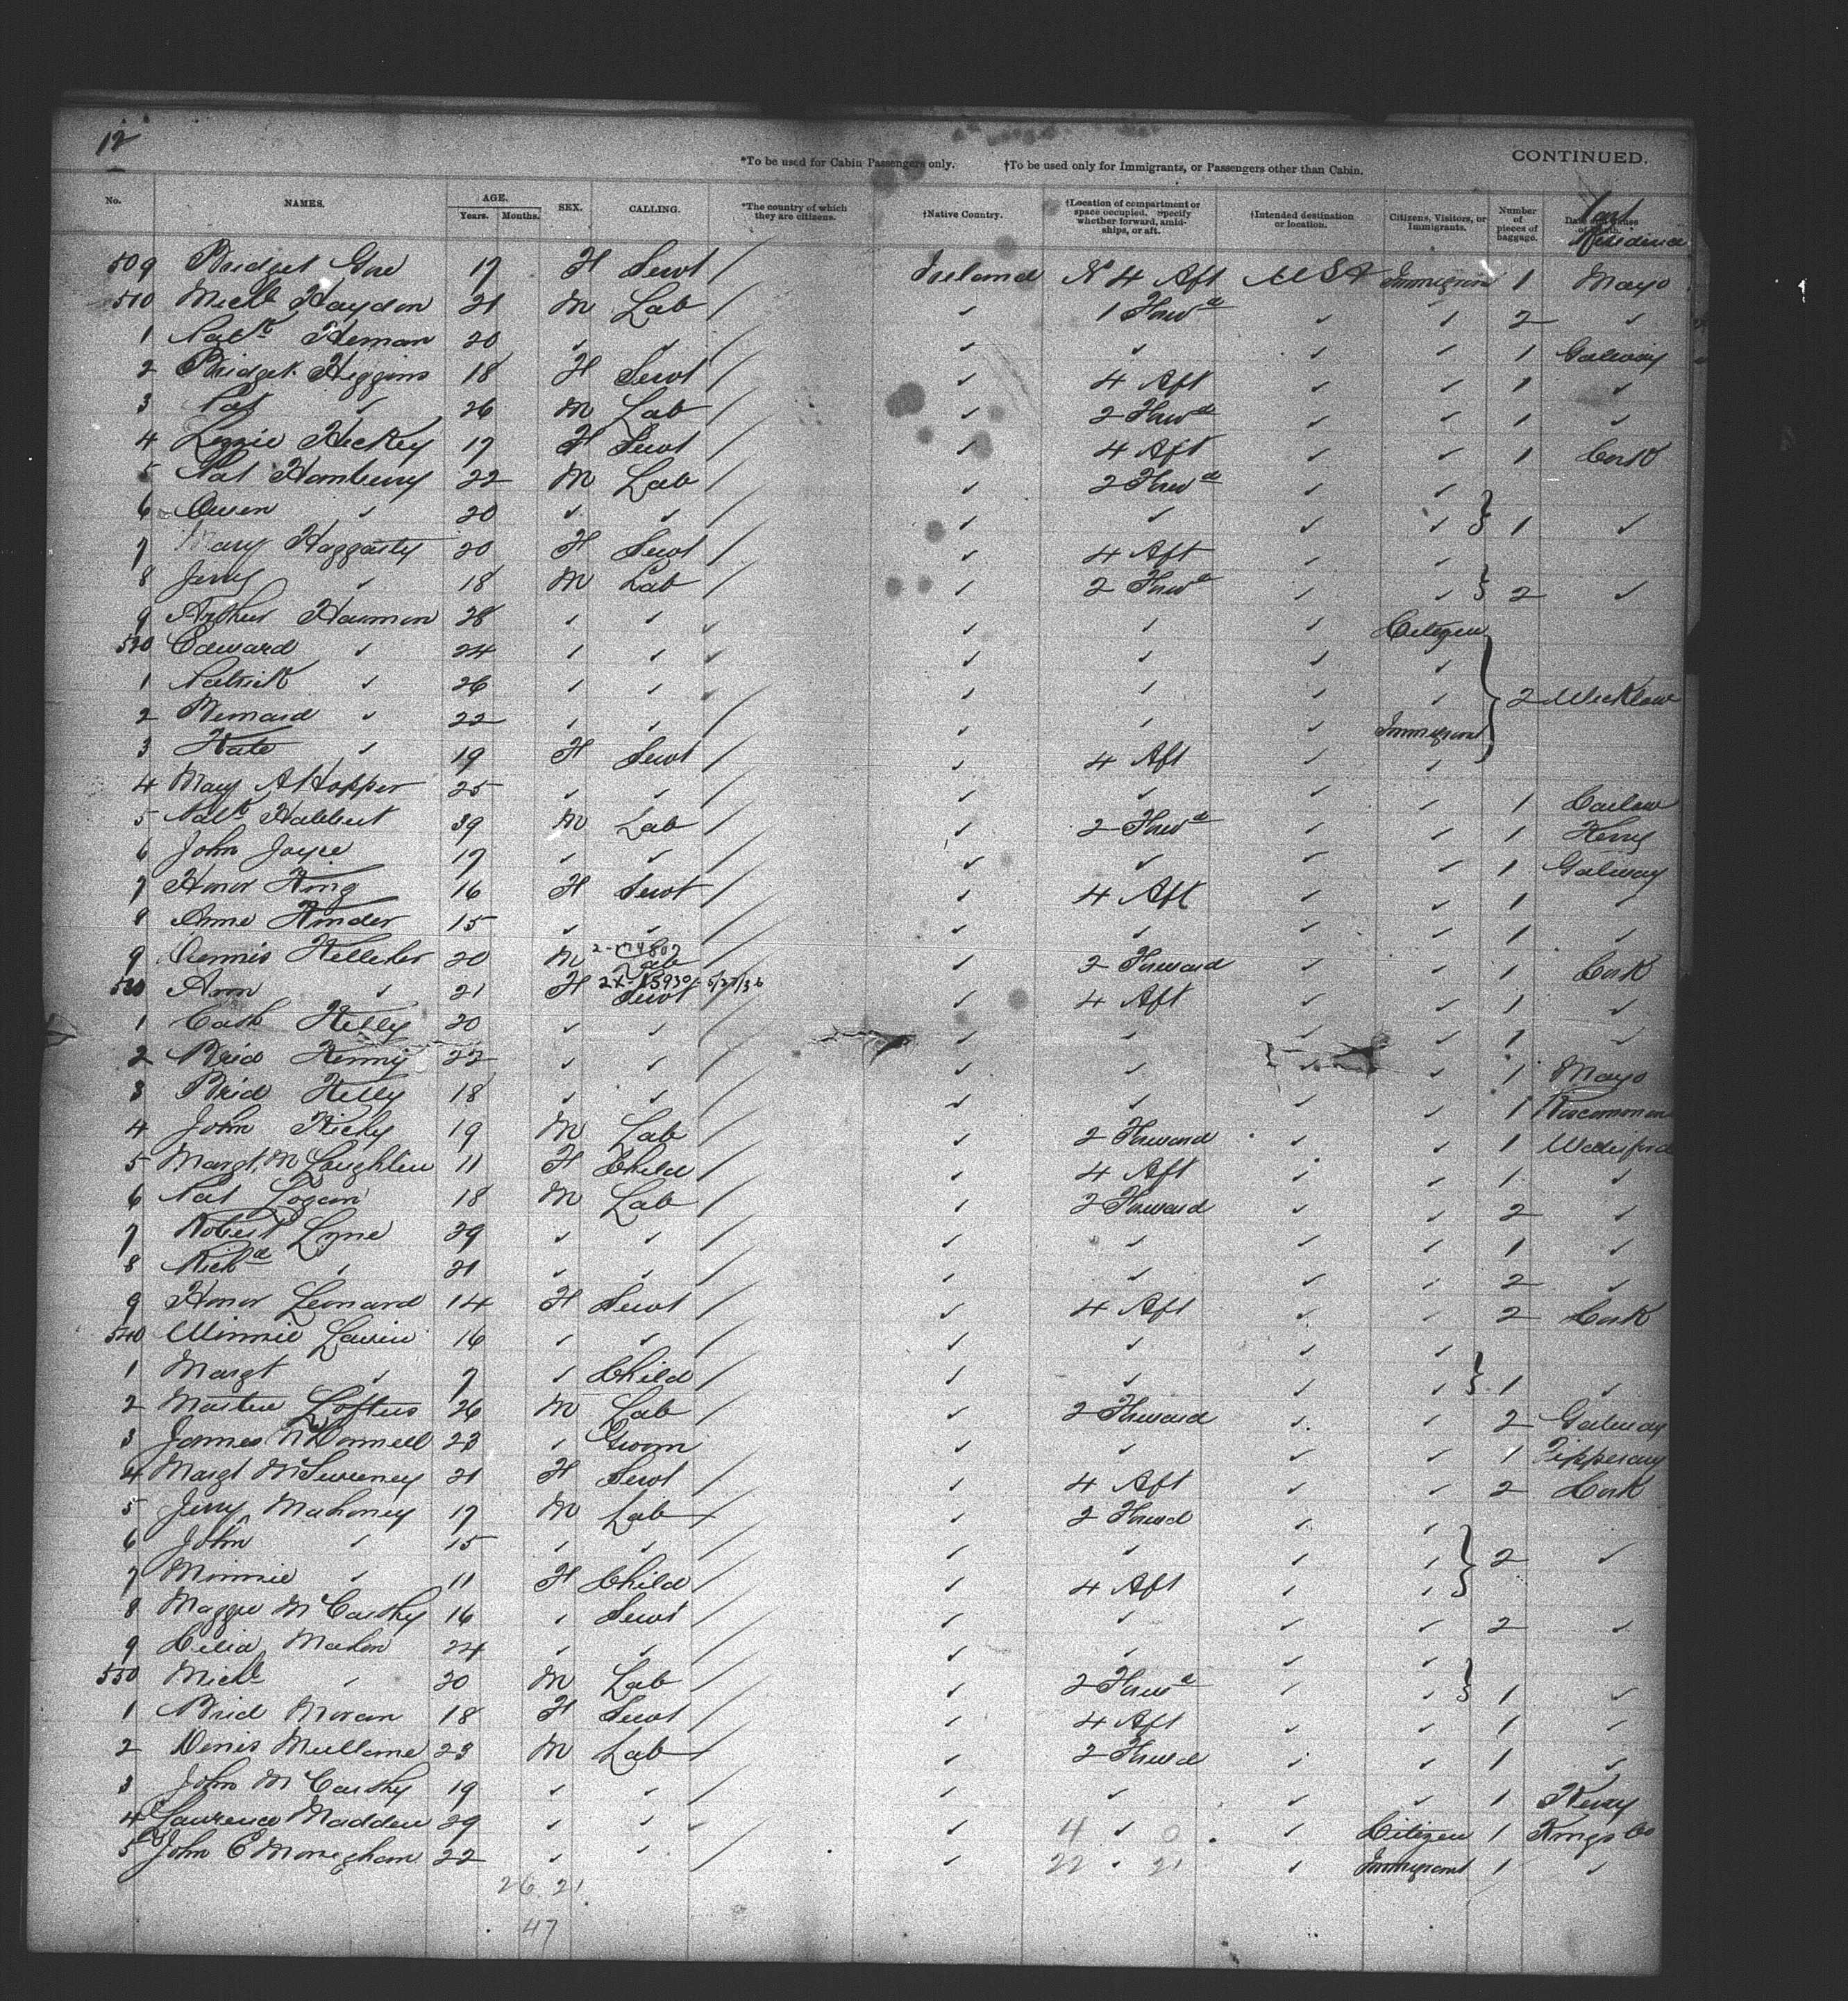 12
*To be used for Cabin Passengers only. †To be used only for Immigrants, or Passengers other than Cabin. CONTINUED.
No. NAMES. AGE. Years. Months. SEX. CALLING. *The country of which they are citizens. †Native Country. †Location of compartment or space occupied. Specify whether forward, amidships, or aft. †Intended destination or location. Citizens, Visitors, or Immigrants. Number of pieces of baggage. Last Residence
509 Bridget 17 F Servt / Ireland No 4 Aft USA Immigrant 1 Mayo
510 Michl Haydon 21 M Lab / ✓ 1 Forwd ✓ ✓ 2 ✓
1 Patk Heman 20 ✓ ✓ / ✓ ✓ ✓ ✓ 1 Galway
2 Bridget Higgins 18 F Servt / ✓ 4 Aft ✓ ✓ 1 ✓
3 Pat ✓ 26 M Lab / ✓ 2 Forwd ✓ ✓ 1 ✓
4 Lizzie Hickey 17 F Servt / ✓ 4 Aft ✓ ✓ 1 Cork
5 Pat Hanbury 22 M Lab / ✓ 2 Forwd ✓ ✓
6 Owen ✓ 20 ✓ ✓ / ✓ ✓ ✓ ✓ } 1 ✓
7 Mary Haggarty 20 F Servt / ✓ 4 Aft ✓ ✓
8 Jerry ✓ 18 M Lab / ✓ 2 Forwd ✓ ✓ } 2 ✓
9 Arthur Harmon 28 ✓ ✓ ✓ ✓ ✓ ✓ Citizen
520 Edward ✓ 24 ✓ ✓ ✓ ✓ ✓ ✓ ✓
1 Patrick ✓ 26 ✓ ✓ ✓ ✓ ✓ ✓ ✓ } 2 Wicklow
2 Bernard ✓ 22 ✓ ✓ / ✓ ✓ ✓ Immigrant
3 Kate ✓ 19 F Servt / ✓ 4 Aft ✓ ✓
4 Mary A Hopper 25 ✓ ✓ / ✓ ✓ ✓ ✓ 1 Carlow
5 Patk Halbert 39 M Lab / ✓ 2 Forwd ✓ ✓ 1 Kerry
6 John Joyce 17 ✓ ✓ / ✓ ✓ ✓ ✓ 1 Galway
7 Honor King 16 F Servt / ✓ 4 Aft ✓ ✓ 1 ✓
8 Anne Kinder 15 ✓ ✓ / ✓ ✓ ✓ ✓ 1 ✓
9 Dennis Kelleher 20 M Lab / ✓ 2 Forward ✓ ✓ 1 Cork
530 Ann ✓ 21 F Servt / ✓ 4 Aft ✓ ✓ 1 ✓
1 Cath Kelly 20 ✓ ✓ / ✓ ✓ ✓ ✓ 1 ✓
2 Brid Kenny 22 ✓ ✓ / ✓ ✓ ✓ ✓ 1 Mayo
3 Brid Kelly 18 ✓ ✓ / ✓ ✓ ✓ ✓ 1 Roscommon
4 John Kiely 19 M Lab / ✓ 2 Forward ✓ ✓ 1 Waterford
5 Margt McLoughlin 11 F Child / ✓ 4 Aft ✓ ✓ 1 ✓
6 Pat Logan 18 M Lab / ✓ 2 Forward ✓ ✓ 2 ✓
7 Robert Lyne 29 ✓ ✓ / ✓ ✓ ✓ ✓ 1 ✓
8 Richd ✓ 21 ✓ ✓ / ✓ ✓ ✓ ✓ 2 ✓
9 Honor Leonard 14 F Servt / ✓ 4 Aft ✓ ✓ 2 Cork
540 Minnie Lavin 16 ✓ ✓ / ✓ ✓ ✓ ✓
1 Margt ✓ 7 ✓ Child / ✓ ✓ ✓ ✓ } 1 ✓
2 Martin Loftus 26 M Lab / ✓ 2 Forward ✓ ✓ 2 Galway
3 James McDonnell 23 ✓ Groom / ✓ ✓ ✓ ✓ 1 Tipperary
4 Margt McSweeney 21 F Servt / ✓ 4 Aft ✓ ✓ 2 Cork
5 Jerry Mahoney 17 M Lab / ✓ 2 Forwd ✓ ✓
6 John ✓ 15 ✓ ✓ / ✓ ✓ ✓ ✓ } 2 ✓
7 Minnie ✓ 11 F Child / ✓ 4 Aft ✓ ✓
8 Maggie McCarthy 16 ✓ Servt / ✓ ✓ ✓ ✓ 2 ✓
9 Celia Mahon 24 ✓ ✓ / ✓ ✓ ✓ ✓
550 Michl ✓ 20 M Lab / ✓ 2 Forwd ✓ ✓ } 1 ✓
1 Brid Moran 18 F Servt / ✓ 4 Aft ✓ ✓ 1 ✓
2 Denis Mullane 23 M Lab / ✓ 2 Forwd ✓ ✓ 1 ✓
3 John McCarthy 19 ✓ ✓ / ✓ ✓ ✓ ✓ 1 Kerry
4 Lawrence Madden 29 ✓ ✓ ✓ ✓ 4 ✓ 0 ✓ Citizen 1 Kings Co
5 John E Monighan 22 ✓ ✓ / ✓ 22 ✓ 21 ✓ Immigrant 1 ✓
26 21
47